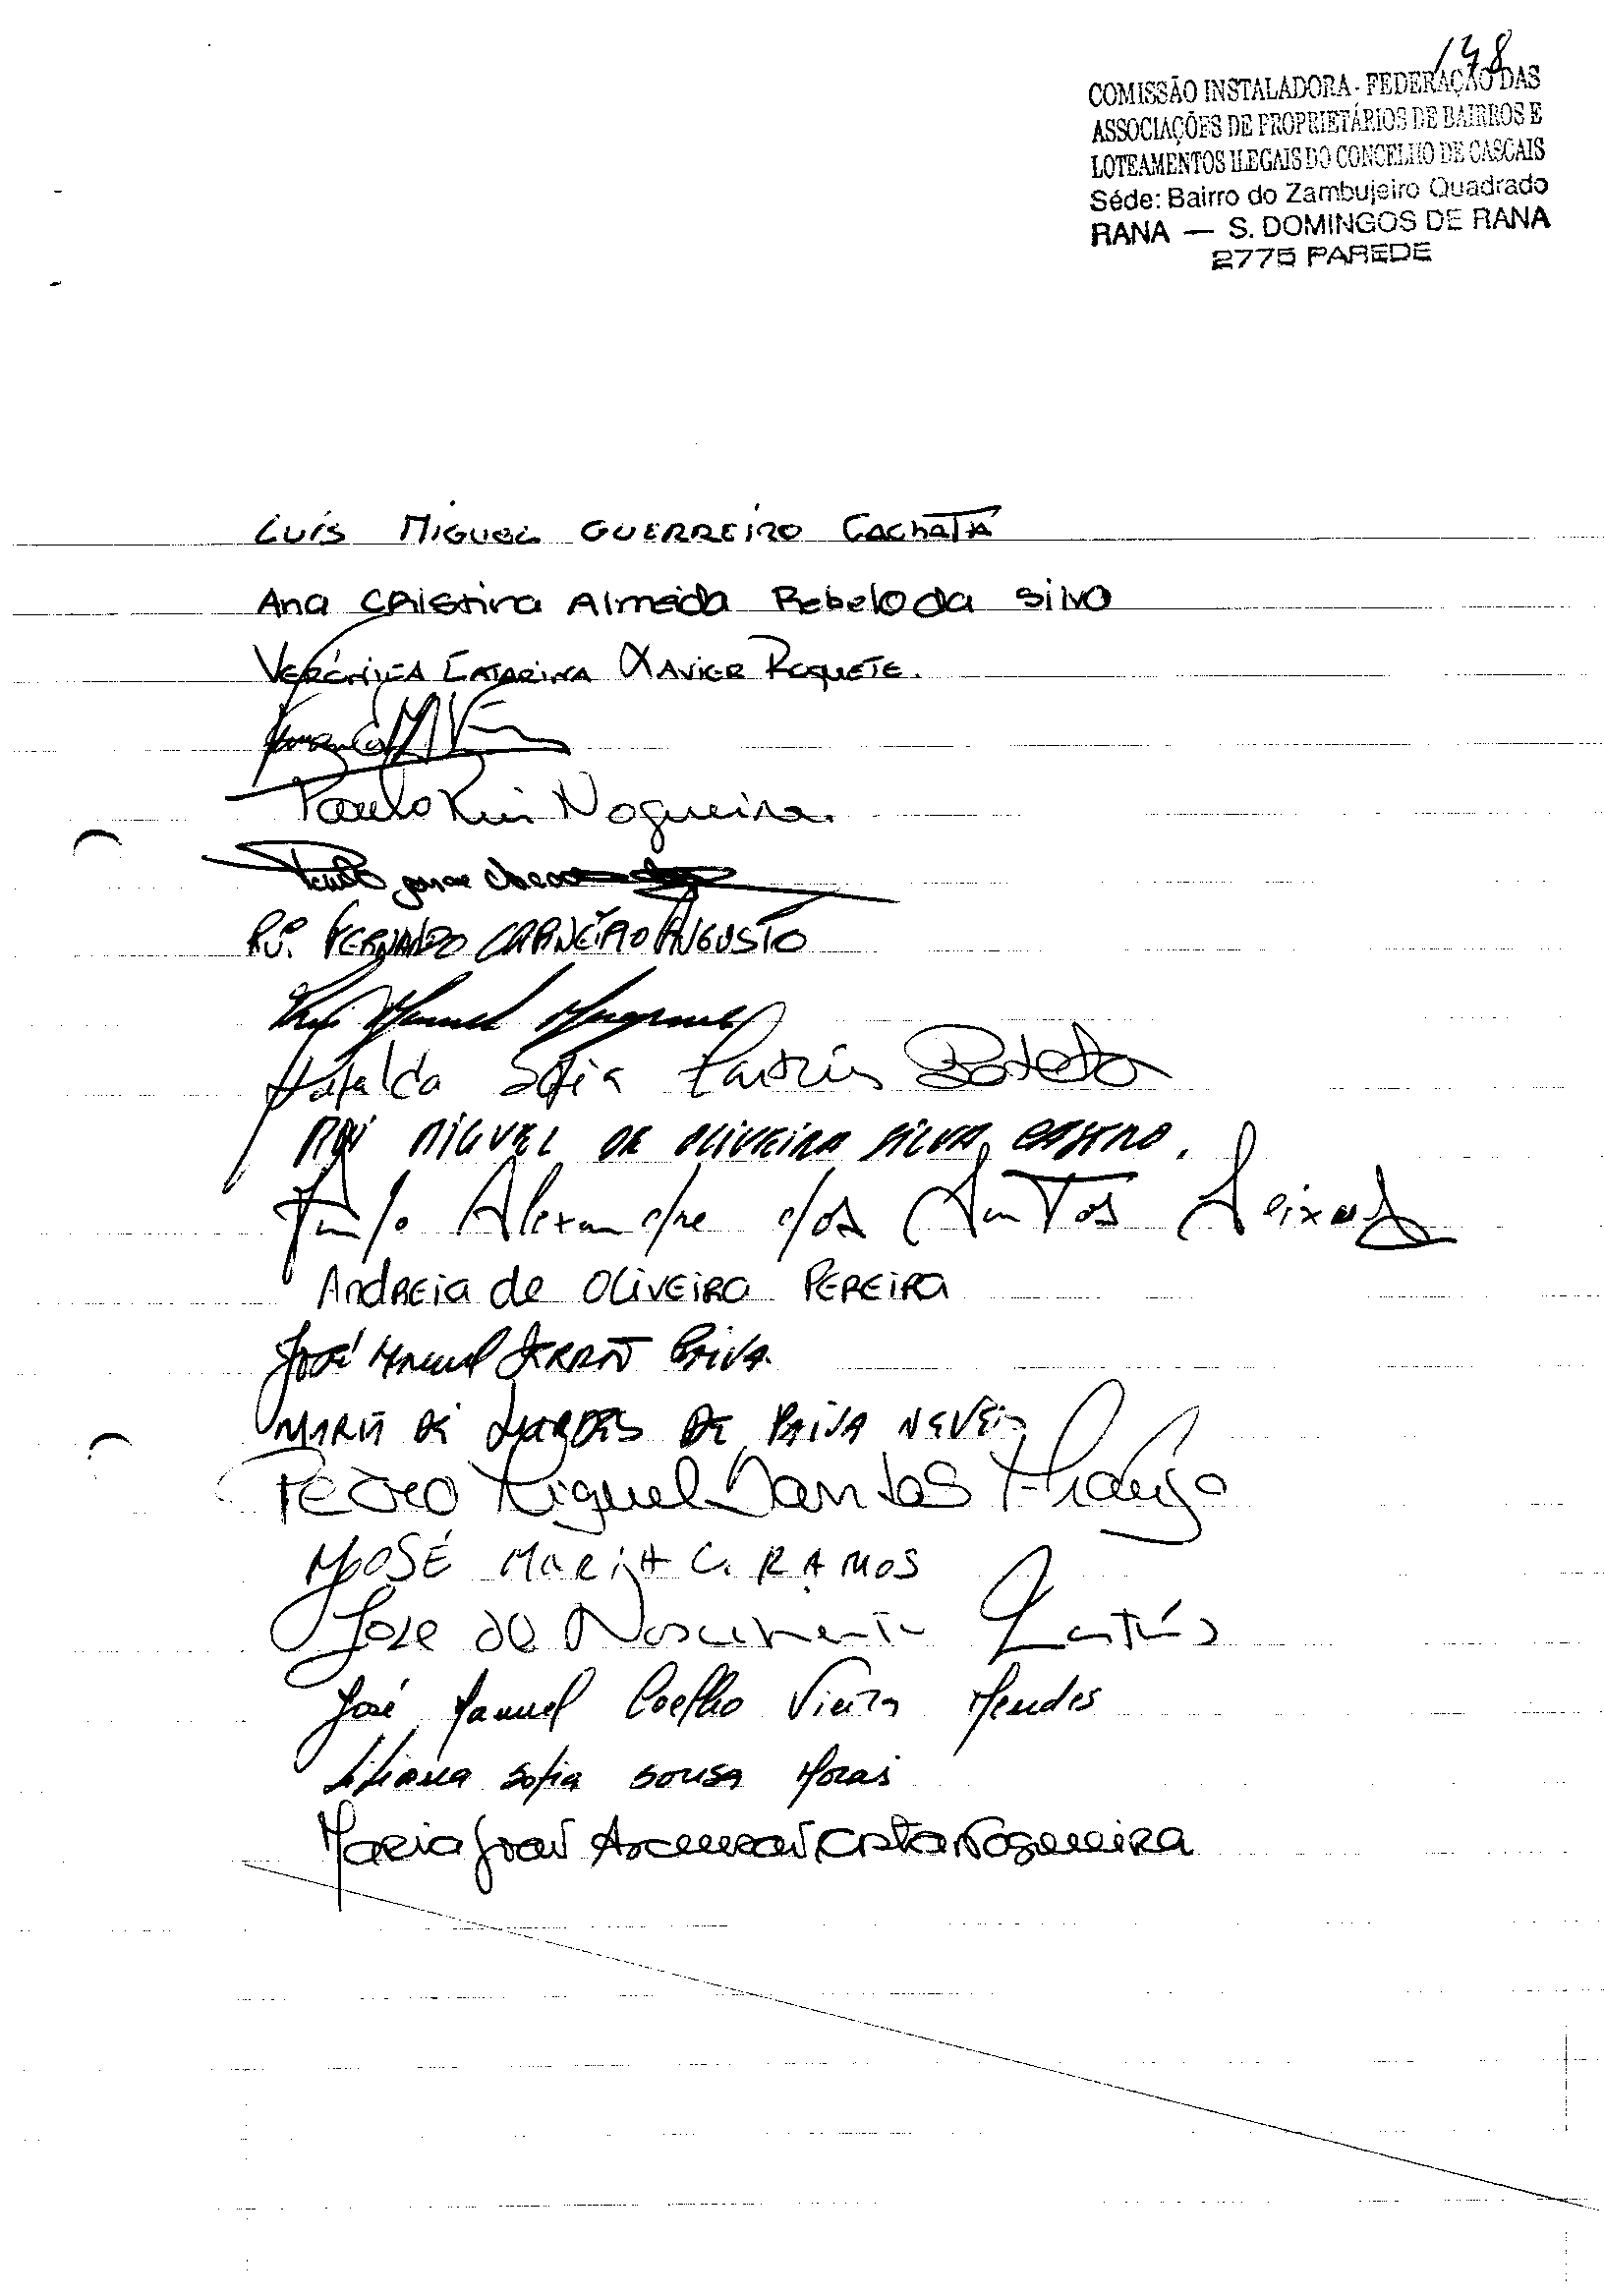 178
COMISSÃO INSTALADORA - FEDERAÇÃO DAS
ASSOCIAÇÕES DE PROPRIETÁRIOS DE BAIRROS E
LOTEAMENTOS ILEGAIS DO CONCELHO DE CASCAIS
Séde: Bairro do Zambujeiro Quadrado
RANA — S. DOMINGOS DE RANA
2775 PAREDE
Luís Miguel GUERREIRO Cachatá
Ana Cristina Almeida Rebelo da Silva
VERÓNICA CATARINA XAVIER ROQUETE.
Paulo Rui Nogueira
Paulo
Rui FERNANDO CARNEIRO AUGUSTO
Manuel
Mafalda Sofia Martins Botelho
RUI MIGUEL DE OLIVEIRA SILVA CASTRO.
Paulo Alexandre dos Santos Seixas
Andreia de OLIVEIRA PEREIRA
José Manuel SERRÃO PAIVA
MARIA DE LURDES DE PAIVA NEVES
Pedro Miguel Santos Araújo
JOSÉ MARIA C. RAMOS
José do Nascimento Martins
José Manuel Coelho Vieira Mendes
Liliana Sofia Sousa Morais
Maria João Ascensão Costa Nogueira